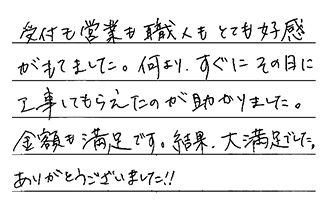 受付も営業も職人もとても好感
がもてました。何より、すぐにその日に
工事してもらえたのが助かりました。
金額も満足です。結果、大満足でした。
ありがとうございました!!